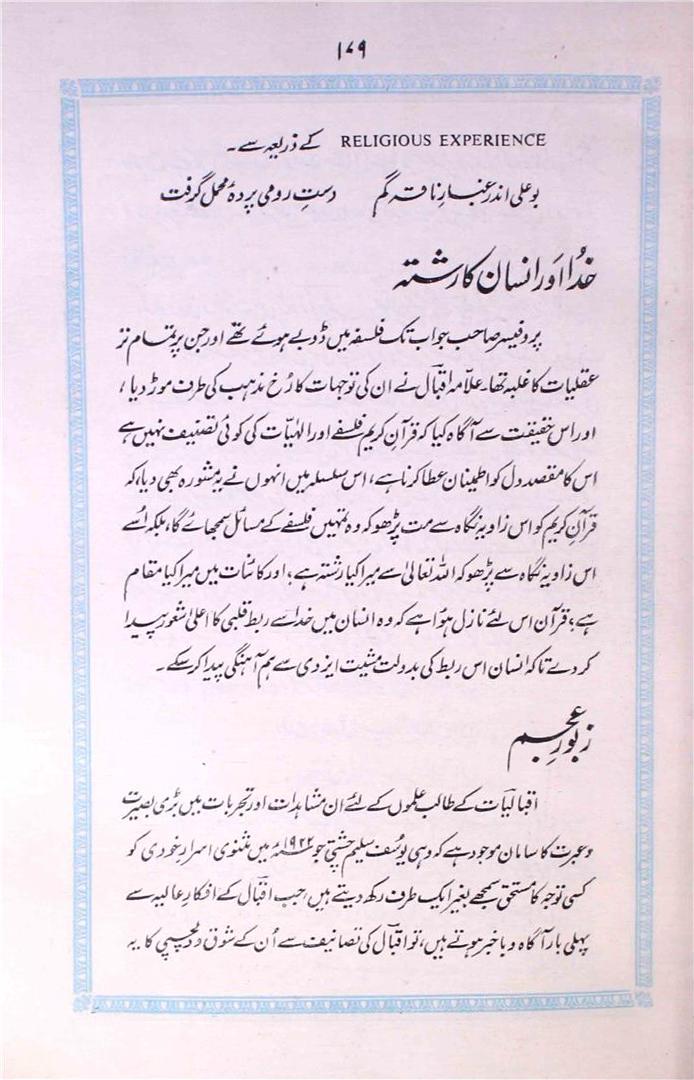 ۱۷۹
RELIGIOUS EXPERIENCE کے ذریعہ سے۔
بوعلی اندر غبارِ ناقہ گم دستِ رومی پردۂ محمل گرفت
خدُا اور انسان کا رشتہ
پروفیسر صاحب جواب تک فلسفہ میں ڈوبے ہوئے تھے اور جن پر تمام تر
عقلیات کا غلبہ تھا۔ علّامہ اقبالؔ نے ان کی توجہات کا رُخ مذہب کی طرف موڑ دیا،
اور اس حقیقت سے آگاہ کیا کہ قرآنِ کریم فلسفے اور الٰہیّات کی کوئی تصنیف نہیں ہے
اس کا مقصد دل کو اطمینان عطا کرنا ہے، اس سلسلہ میں انہوں نے یہ مشورہ بھی دیا، کہ
قرآنِ کریم کو اس زاویۂ نگاہ سے مت پڑھو کہ وہ تمہیں فلسفے کے مسائل سمجھائے گا، بلکہ اُسے
اس زاویۂ نگاہ سے پڑھو کہ اللہ تعالیٰ سے میرا کیا رشتہ ہے؛ اور کائنات میں میرا کیا مقام
ہے، قرآن اس لئے نازل ہوُا ہے کہ وہ انسان میں خدا سے ربط قلبی کا اعلیٰ شعور پیدا
کر دے تاکہ انسان اس ربط کی بدولت مشیت ایزدی سے ہم آہنگی پیدا کر سکے۔
زبورِ عجم
اقبالیات کے طالب علموں کے لئے ان مشاہدات اور تجربات میں بڑی بصیرت
و عبرت کا سامان موجود ہے کہ وہی یوسُف سلیم چشتی جو ۱۹۲۲ء میں مثنوی اسرارِ خودی کو
کسی توجہ کا مستحق سمجھے بغیر ایک طرف رکھ دیتے ہیں، جب اقبالؔ کے افکارِ عالیہ سے
پہلی بار آگاہ و باخبر ہوتے ہیں، تو اقبالؔ کی تصانیف سے اُن کے شوق و دلچسپی کا یہ